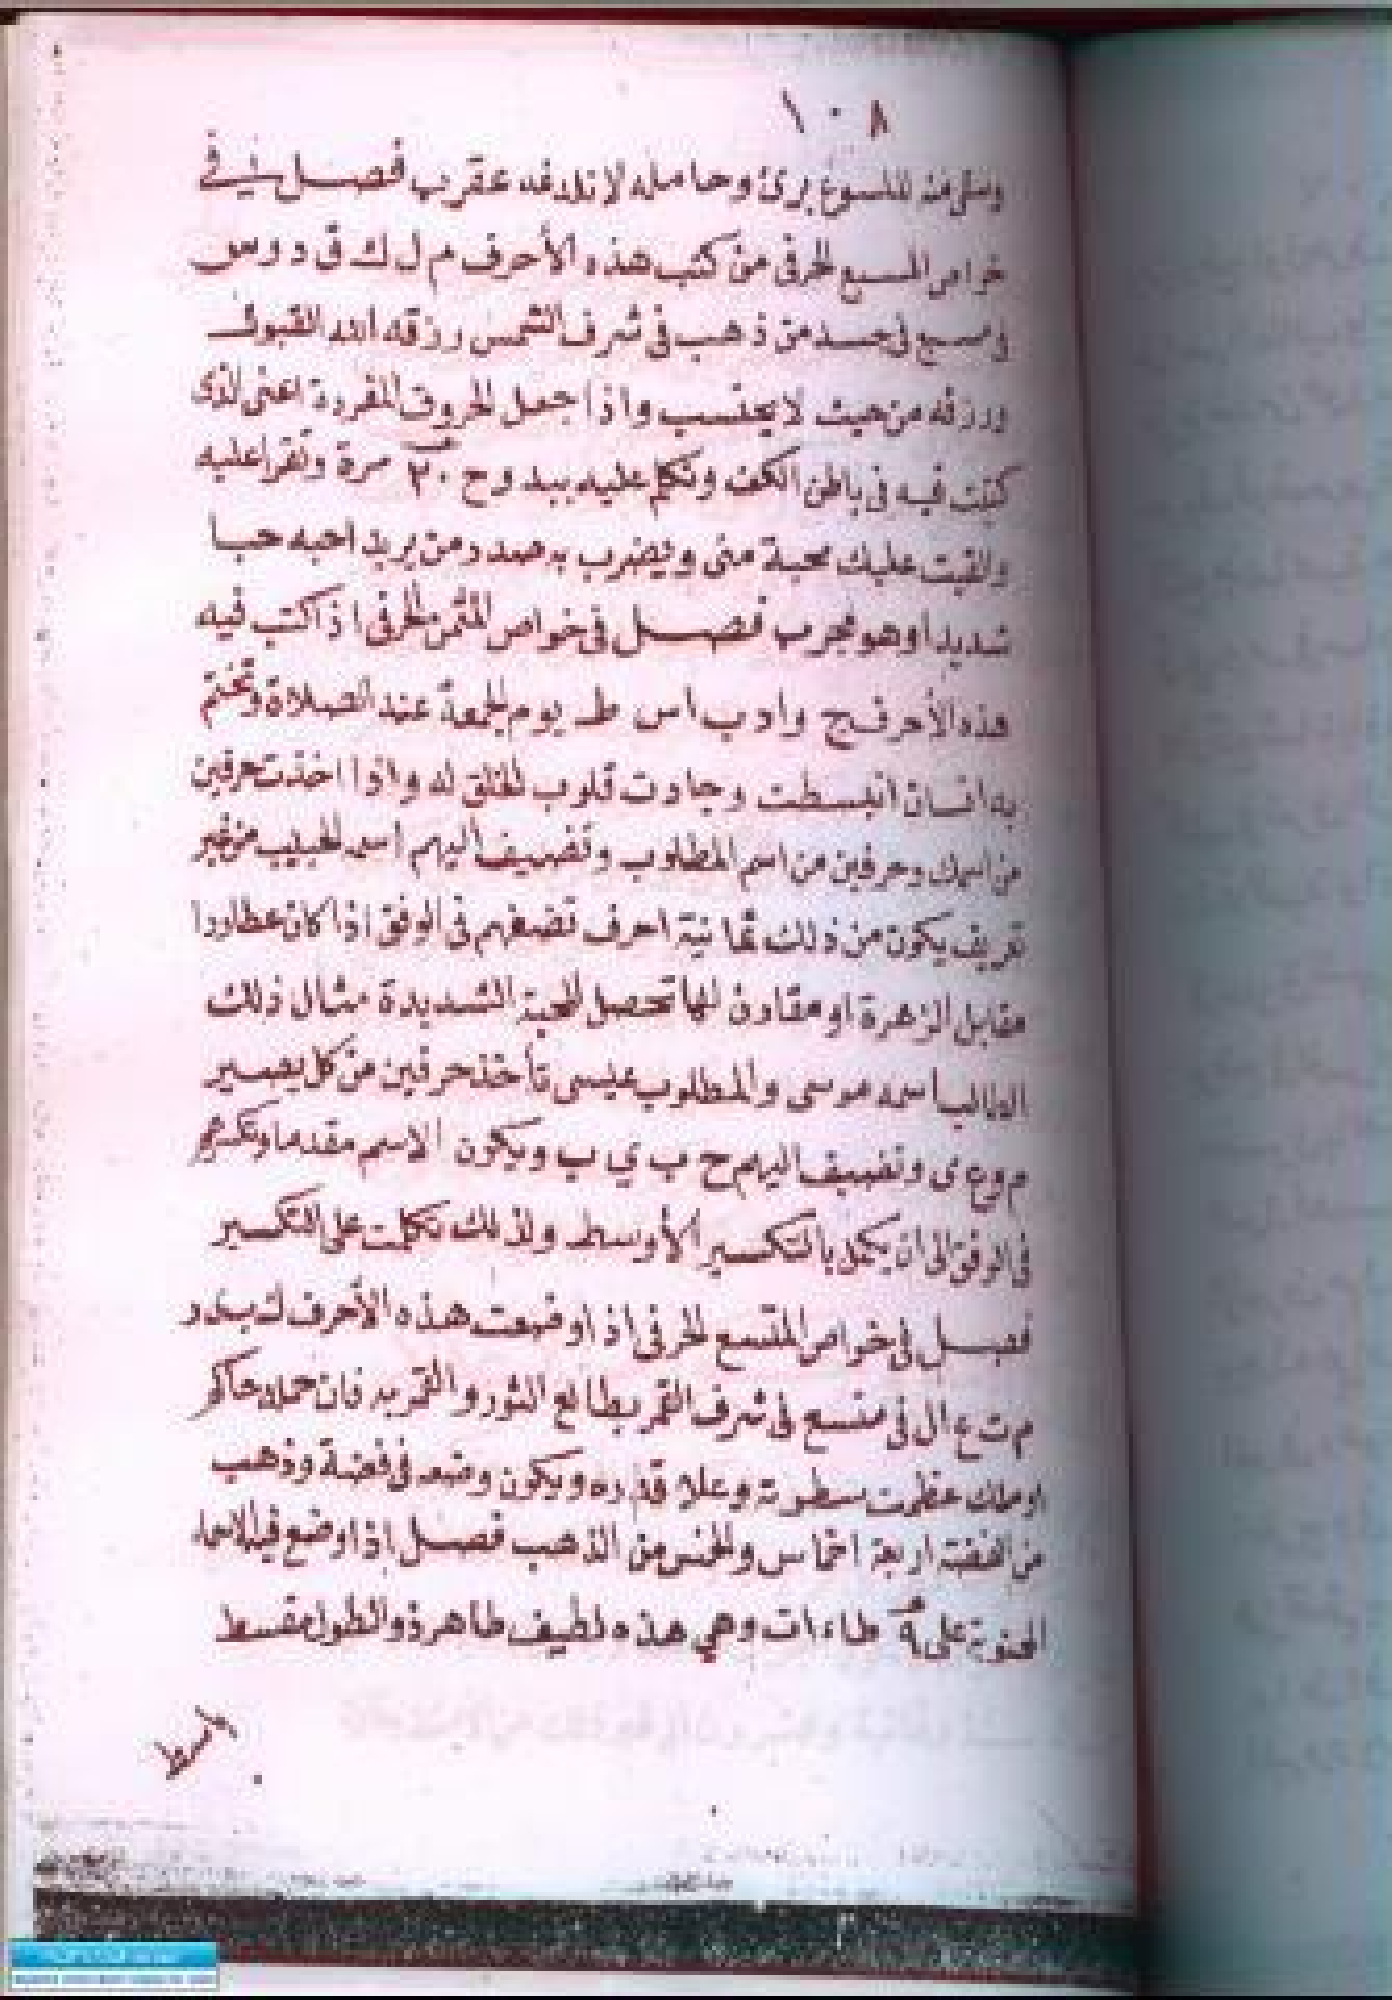 ١٠٨
وسقي منه للملسوع برئ وحامله لا تلدغه عقرب فصل في
خواص المسبع الحرفى من كتب هذه الأحرف م ل ك ق د و س
فى مسبع فى جسد من ذهب فى شرف الشمس رزقه الله القبول
ورزقه من حيث لا يحتسب واذا جعل الحروف المفردة اعنى الذى
كتبت فيه فى باطن الكف وتكلم عليه ببدوح ٢٠ مرة وتقرا عليه
والقيت عليك محبة منى ويضرب به صدر من يريد احبه حبا
شديدا وهو مجرب فصل فى خواص المثمن الحرفى اذ كتب فيه
هذه الأحرف ج واد ب اس ط يوم الجمعة عند الصلاة وتختم
به انسان انبسطت وجادت قلوب الخلق له واذا اخذت حرفين
من اسمك وحرفين من اسم المطلوب وتضيف اليهم اسم الحبيب من غير
تعريف يكون من ذلك ثمانية احرف تضعهم فى الوفق اذا كان عطاردا
مقابل الزهرة او مقارن لها تحصل المحبة الشديدة مثال ذلك
الطالب اسمه موسى والمطلوب عيسى تأخذ حرفين من كل يصير
م و ع ى وتضيف اليهم ح ب ي ب ويكون الاسم مقدما وتكسر
فى الوفق الى ان يكمل بالتكسير الأوسط ولذلك تكلمت على التكسير
فصل فى خواص المتسع الحرفى اذا وضعت هذه الأحرف ك ب د ر
م ت ع ال فى متسع فى شرف القمر بطالع الثور والقمر به فان حمله حاكم
او ملك عظمت سطوته وعلا قدره ويكون وضعه فى فضة وذهب
من الفضة اربعة اخماس والخمس من الذهب فصل اذا وضع فيه الاسماء
المحتوية على ٩ طاءات وهي هذه لطيف طاهر ذو الطول مقسط